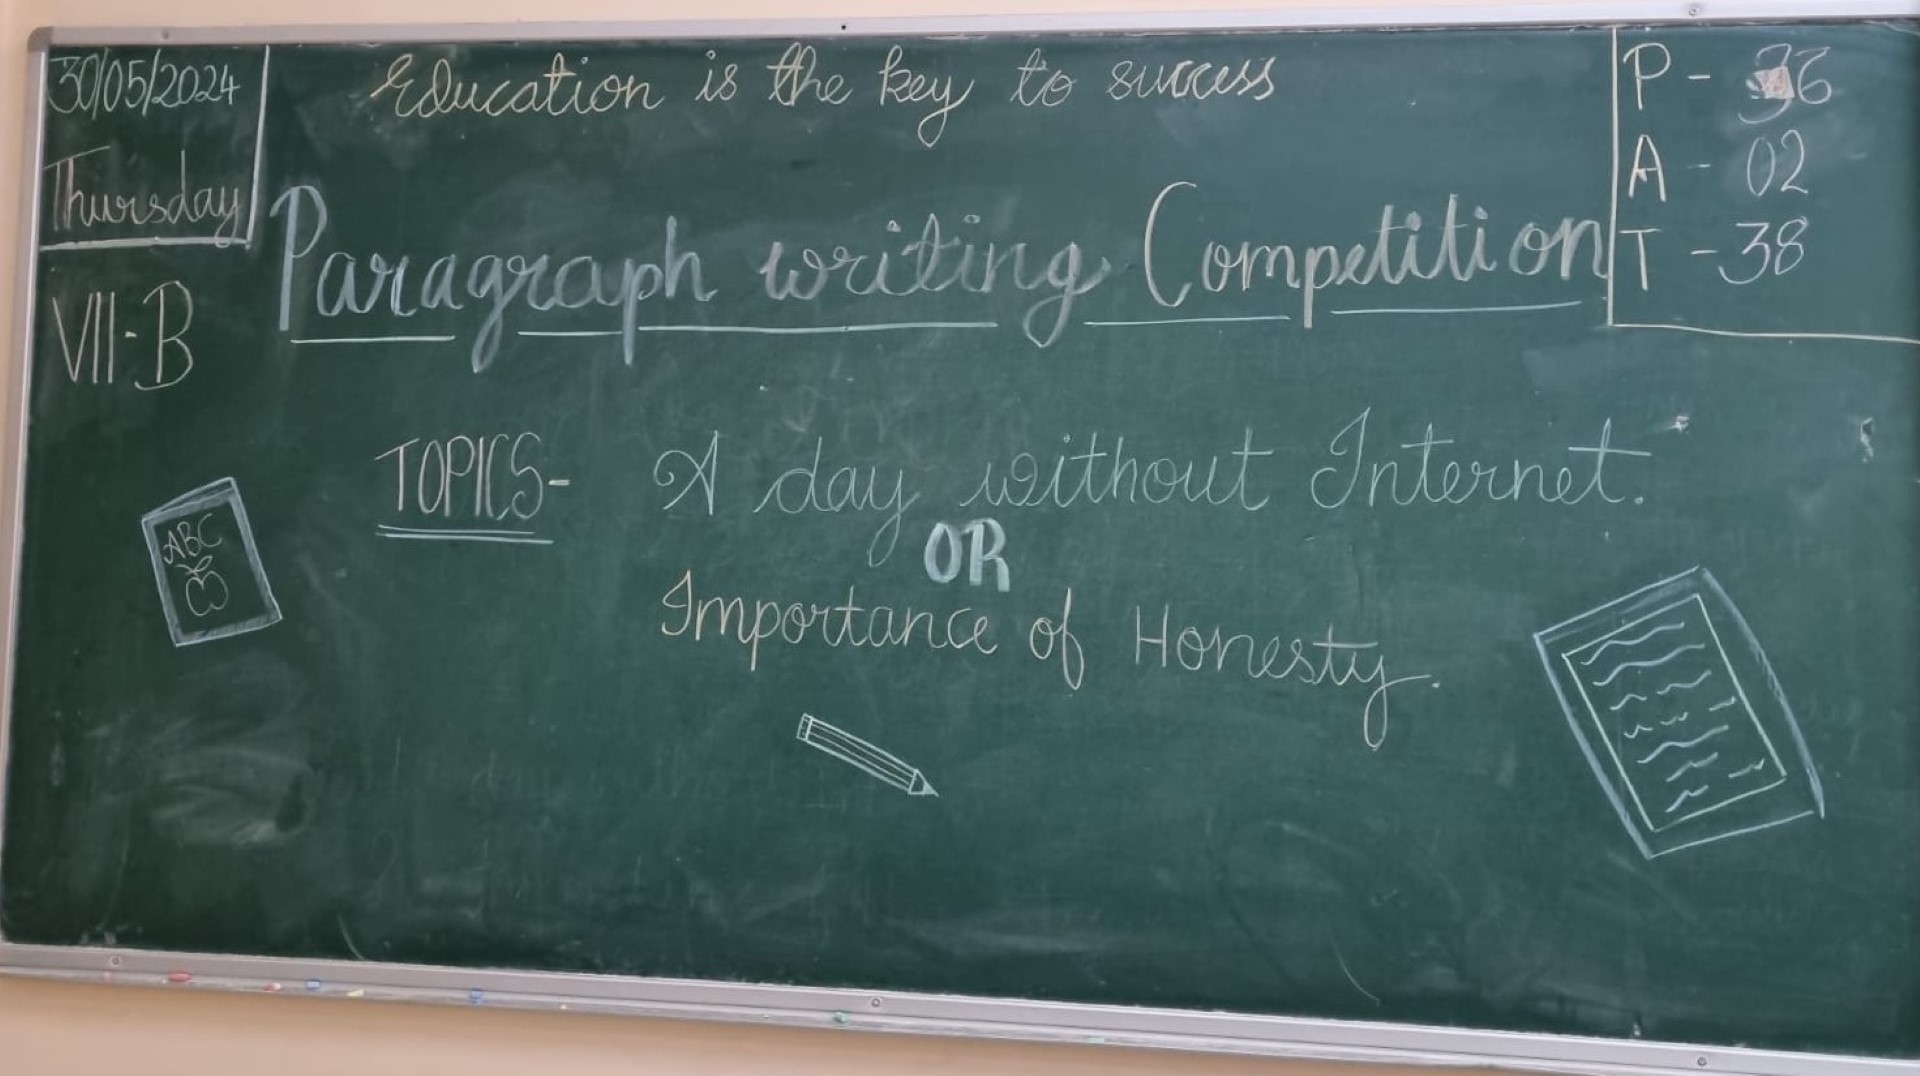 30/05/2024
Thursday
VII-B
Education is the key to success
P - 36
A - 02
T - 38
Paragraph writing Competition
TOPICS- A day without Internet.
OR
Importance of Honesty.
ABC